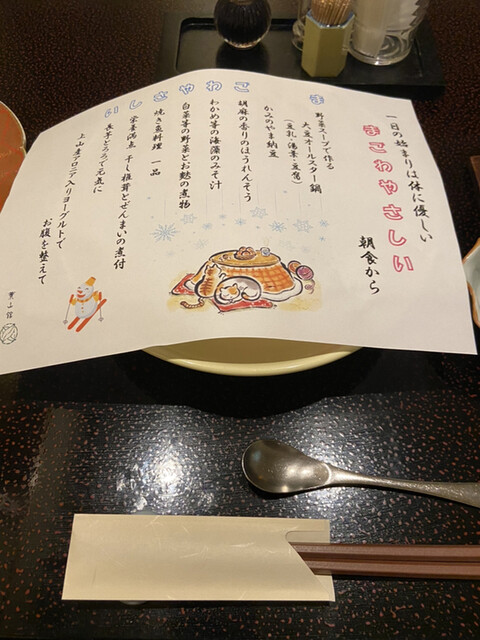 一日の始まりは体に優しい
まごわやさしい
朝食から
ま
野菜スープで作る
大豆オールスター鍋
(豆乳・湯葉・豆腐)
かみのやま納豆
ご
胡麻の香りのほうれんそう
わ
わかめ等の海藻のみそ汁
や
白菜等の野菜とお麩の煮物
さ
焼き魚料理 一品
し
栄養満点 干し椎茸とぜんまいの煮付
い
長芋とろろで元気に
上山産アロニア入りヨーグルトで
お腹を整えて